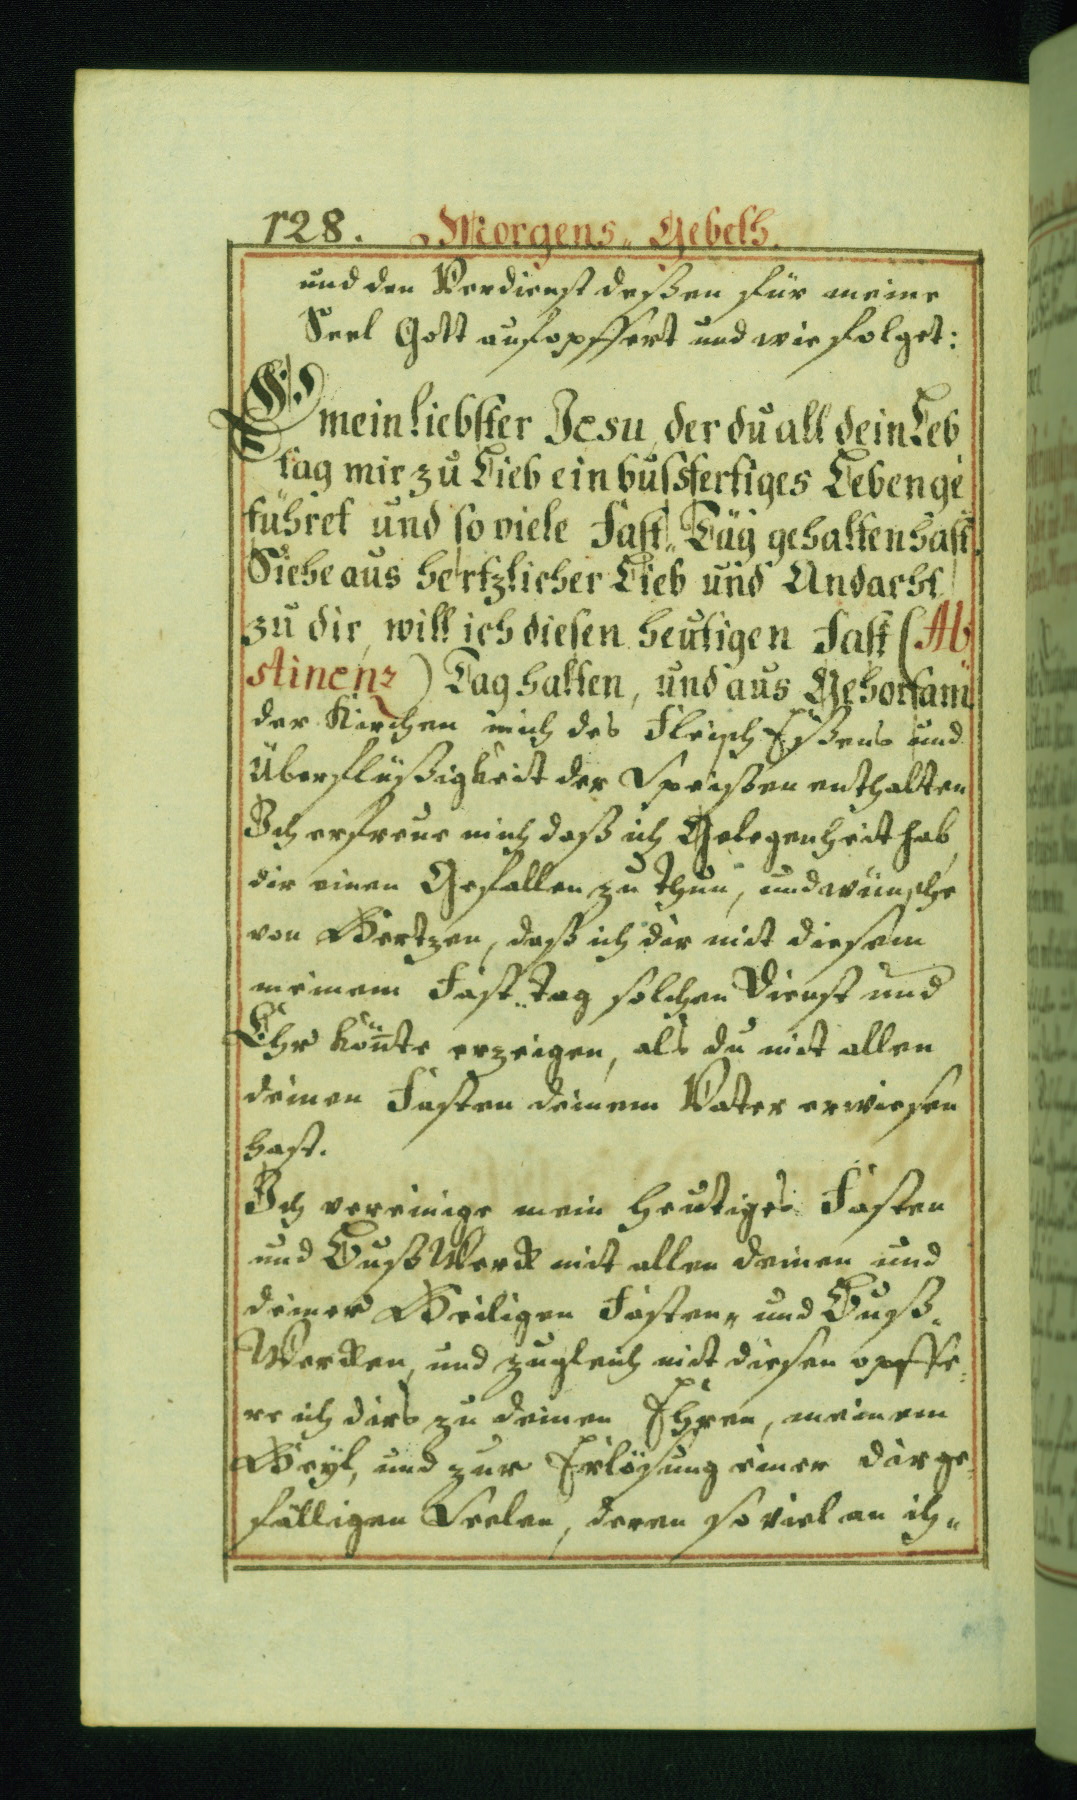 128. Morgens„ Gebeth.
und den Verdienst deßen für meine
Seel Gott aufopffert und wie folget:
O mein liebster Jesu, der du all dein Leb
tag mir zu Lieb ein bussfertiges Leben ge
führet und so viele Fast„ Täg gehalten hast.
Siehe aus hertzlicher Lieb und Andacht
zu dir, will ich diesen heutigen Fast (Ab
stinenz) Tag halten, und aus Gehorsam
der Kirchen mich des Fleisch Eßens und
Überflüßigkeit der Speißen enthalten
Ich erfreue mich daß ich Gelegenheit hab,
dir einen Gefallen zu thun, und wünsche
von Hertzen, daß ich dir mit diesem
meinem Fast„tag solchen Dienst und
Ehr kön̄te erzeigen, als du mit allen
deinen Fasten deinem Vater erwiesen
hast.
Ich vereinige mein heutiges Fasten
und Buß Werck mit allen deinen und
deiner Heiligen Fasten„ und Buß„
Wercken, und zugleich mit diesen opffe„
re ich dirs zu deinen Ehren, meinem
Heyl, und zur Erlösung einer dir ge„
fälligen Seelen, deren so viel an ih„